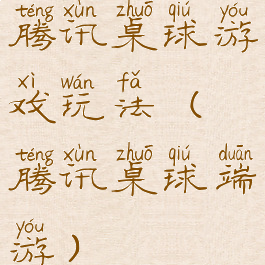 téng xùn zhuō qiú yóu
腾讯桌球游
xì wán fǎ
戏玩法（
téng xùn zhuō qiú duān
腾讯桌球端
yóu
游）